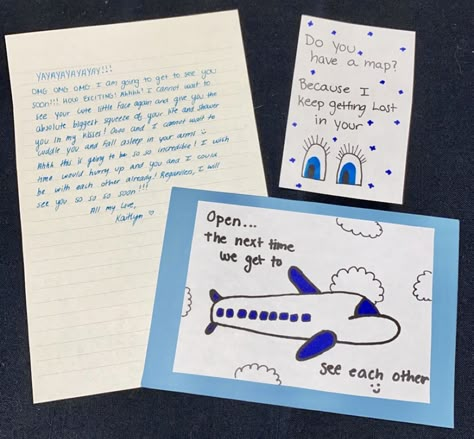 YAYAYAYAYAYAY!!!
OMG OMG OMG I am going to get to see you
soon!!! HOW EXCITING! Ahhhh! I cannot wait to
see your cute little face again and give you the
absolute biggest squeeze of your life and shower
you in my kisses! Ohhh and I cannot wait to
cuddle you and fall asleep in your arms
Ahhh this is going to be so so incredible! I wish
time would hurry up and you and I could
be with each other already! Regardless, I will
see you so so so so soon!!!
All my love,
Kaitlyn ♡
Do you
have a map?
Because I
keep getting Lost
in your
Open...
the next time
we get to
see each other